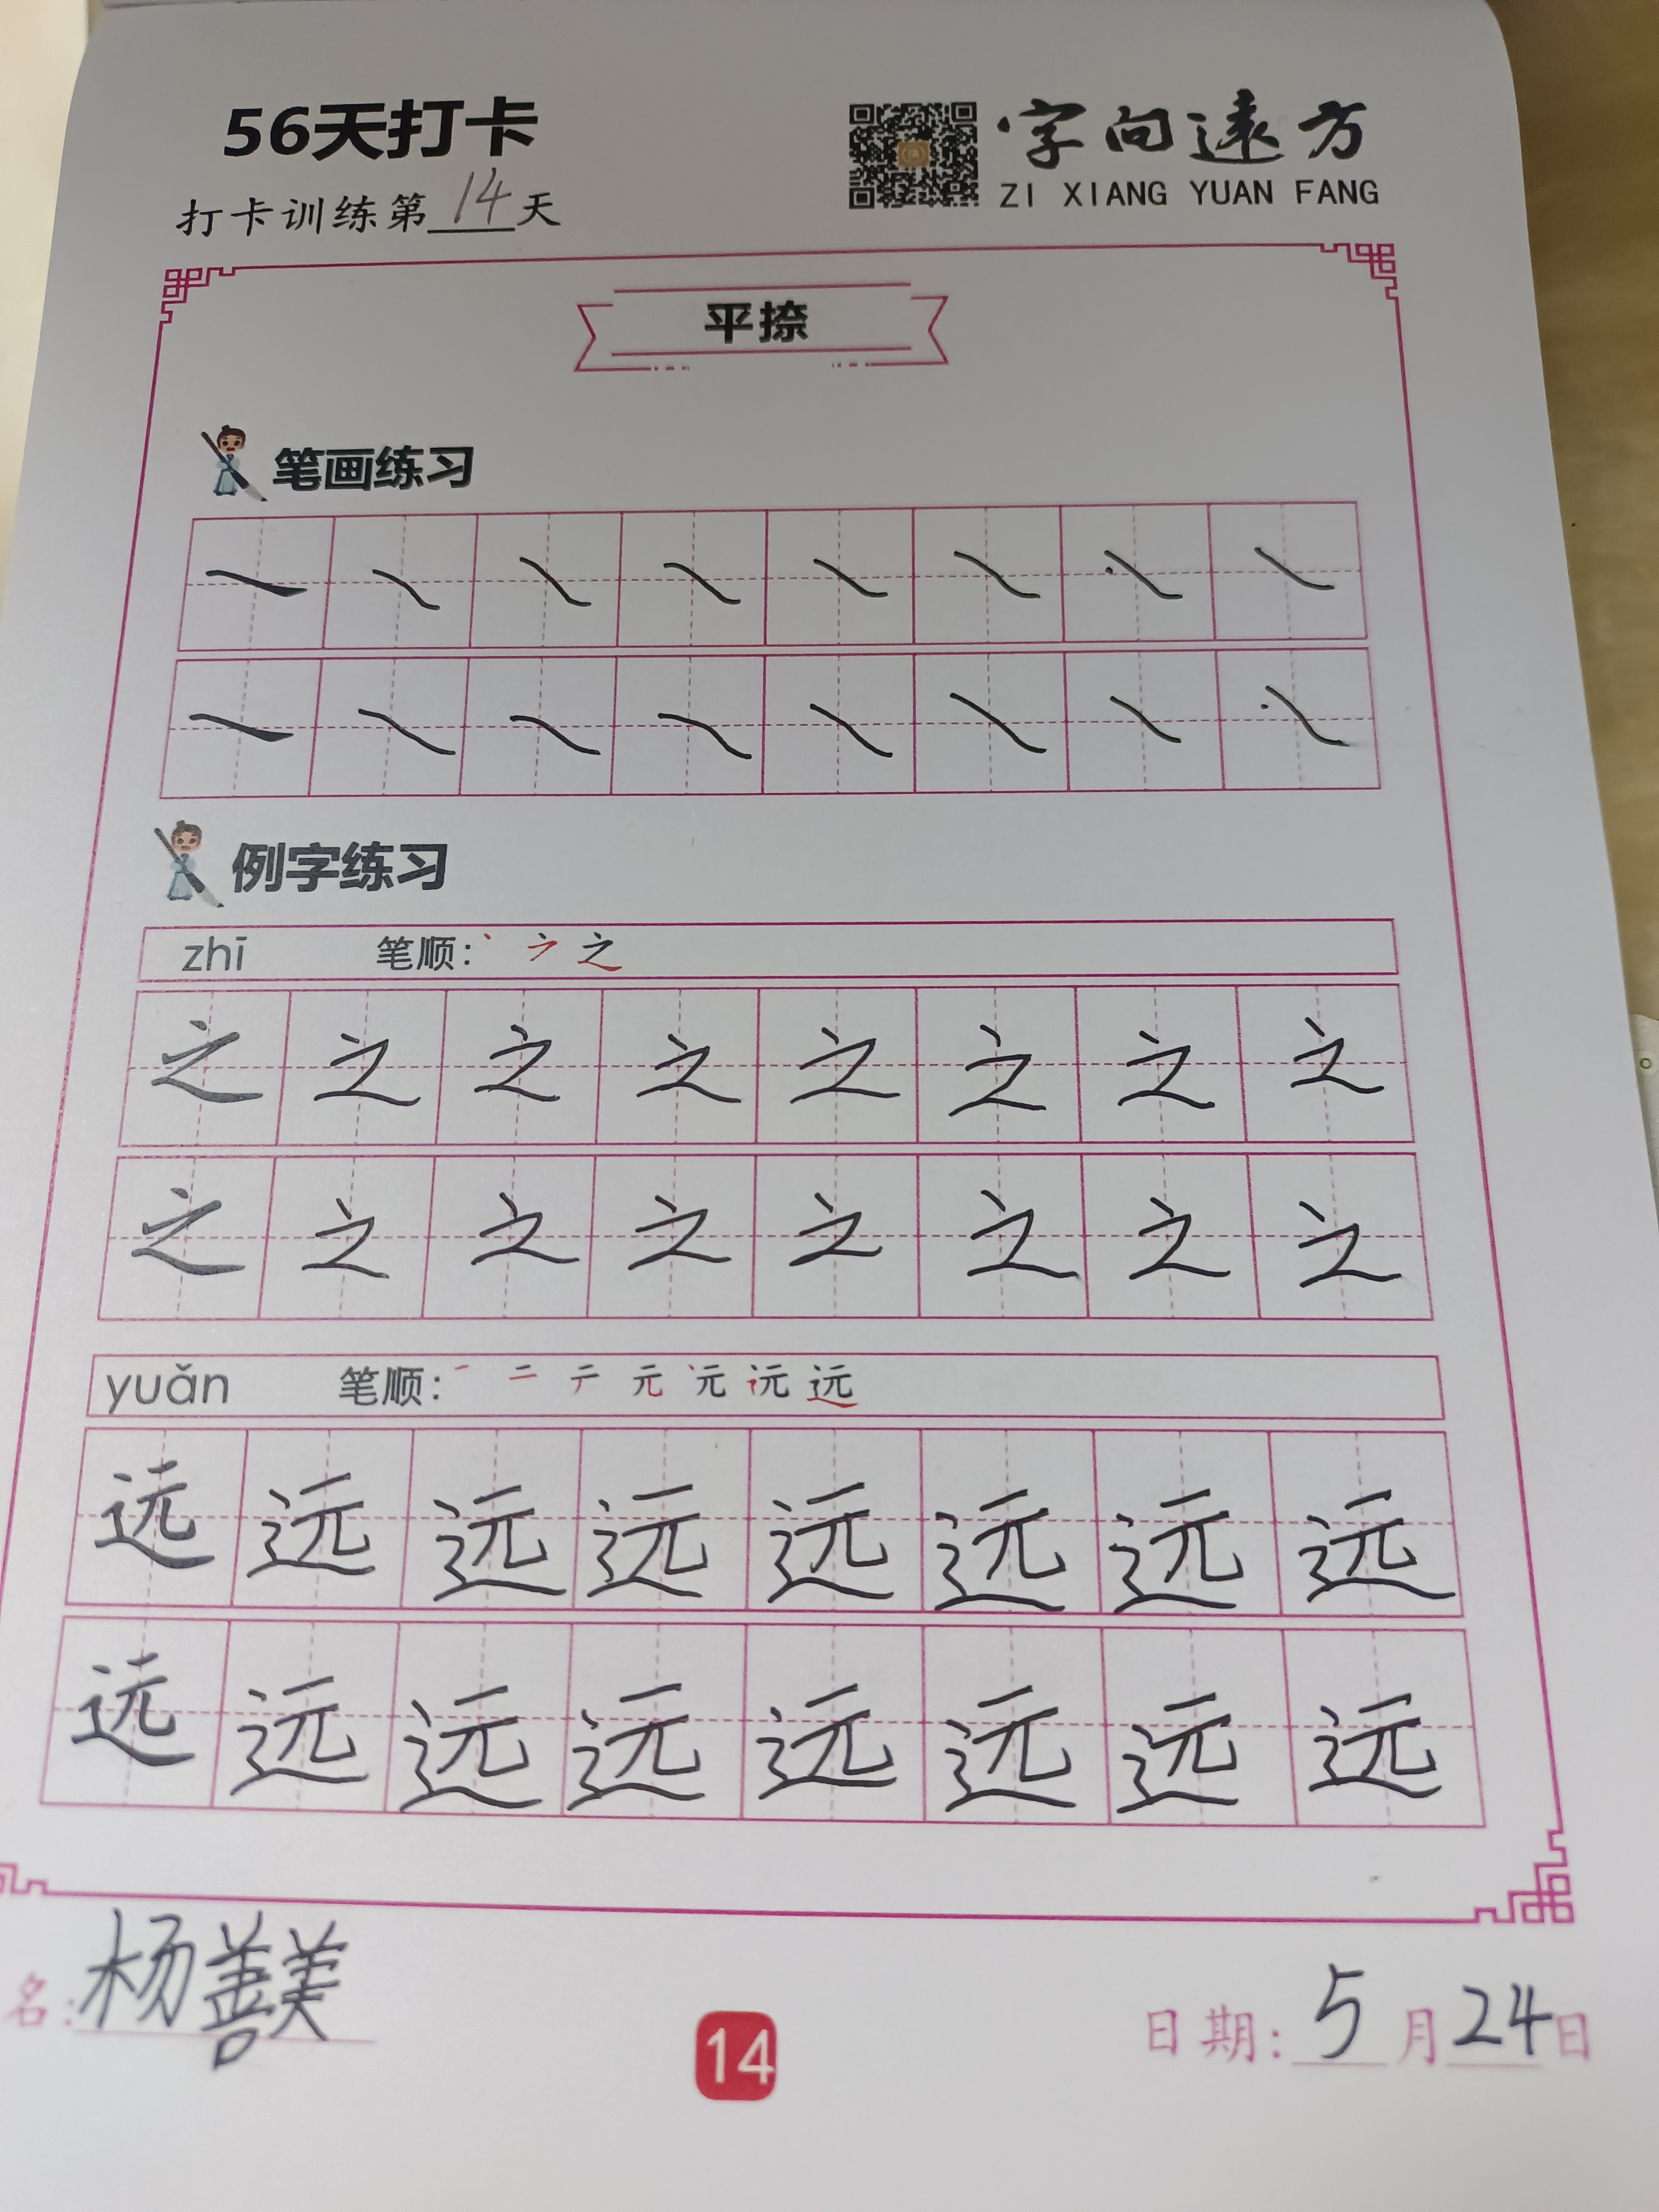 56天打卡
字向遠方
ZI XIANG YUAN FANG
打卡训练第14天
平捺
笔画练习
例字练习
zhī 笔顺: 之
之 之 之 之 之 之 之 之
之 之 之 之 之 之 之 之
yuǎn 笔顺: 一 二 テ 元 远
远 远 远 远 远 远 远 远
远 远 远 远 远 远 远 远
名: 杨善美
14
日期: 5月24日